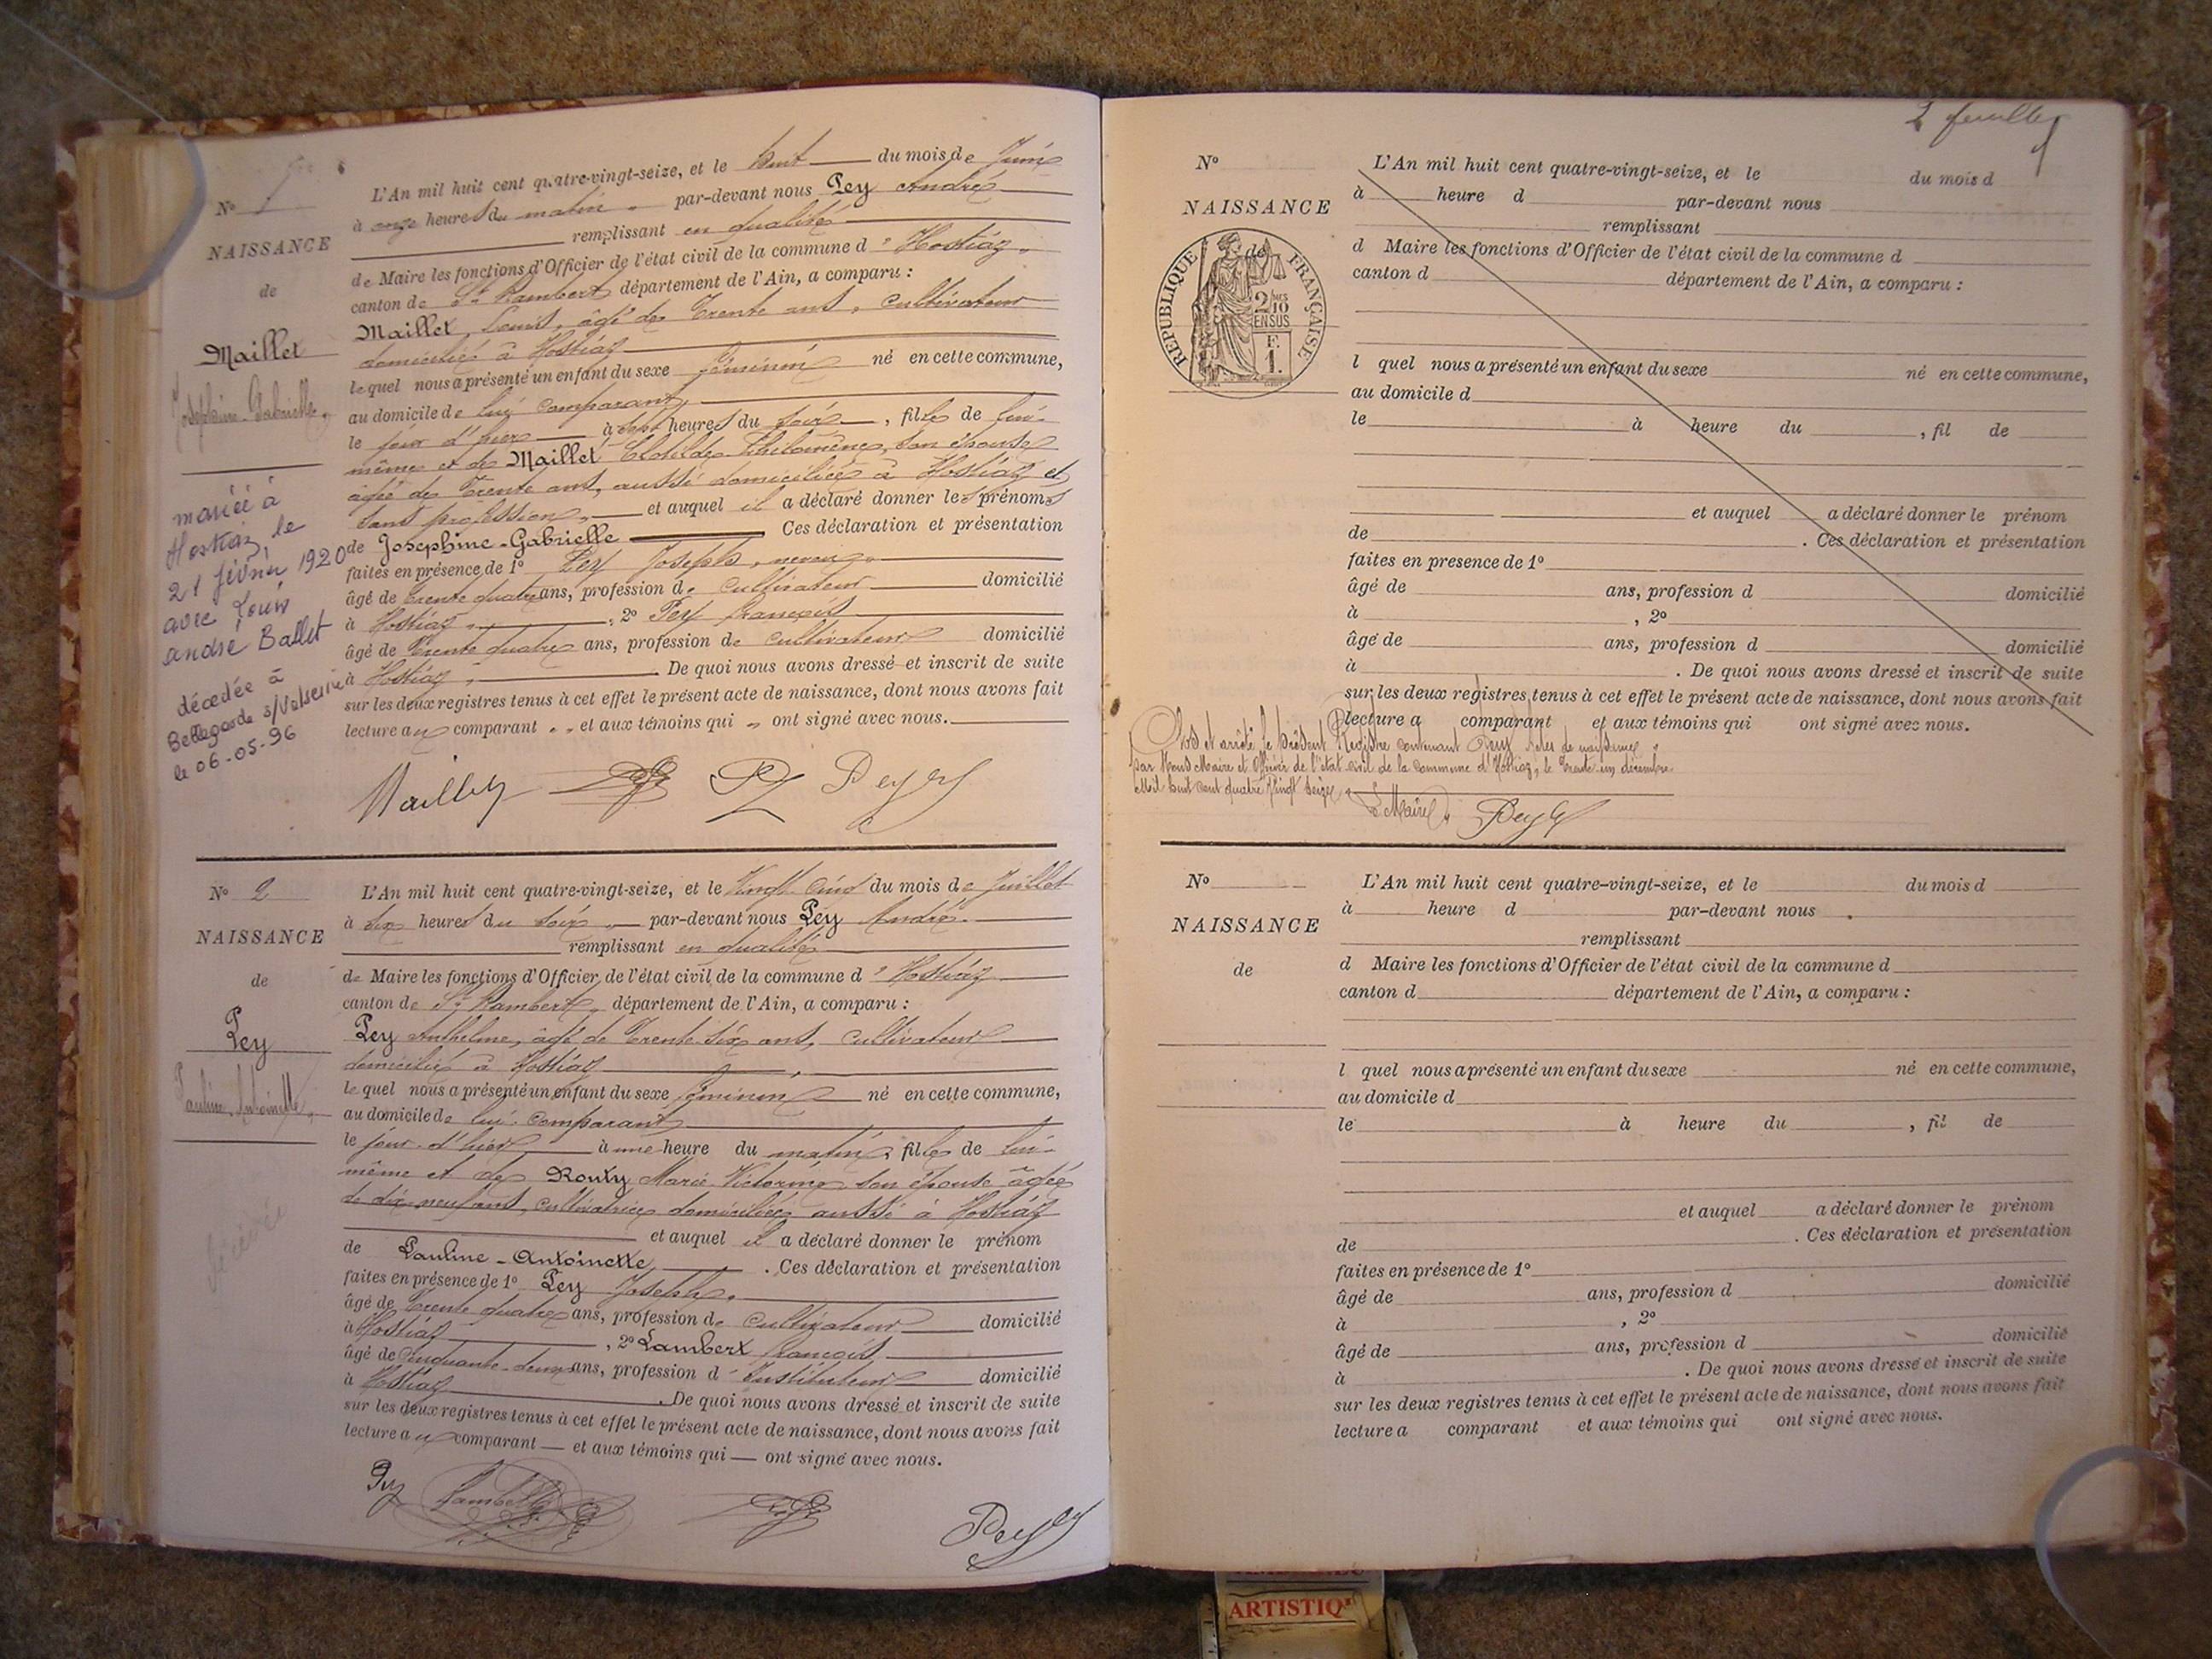 N° 1
NAISSANCE
de
Maillet
Joséphine-Gabrielle
mariée à
Hostiaz le
21 février 1920
avec Louis
andré Ballet
décédée à
Bellegarde s/Valserine
le 06-05-96
L'An mil huit cent quatre-vingt-seize, et le huit du mois de Juin
à onze heures du matin par-devant nous Pey André
remplissant en qualité
de Maire les fonctions d'Officier de l'état civil de la commune d' Hostiaz
canton de St Rambert département de l'Ain, a comparu :
Maillet, Louis, âgé de Trente ans, cultivateur
domicilié à Hostiaz
lequel nous a présenté un enfant du sexe féminin né en cette commune,
au domicile de lui comparant
le jour d'hier à sept heures du soir, fille de lui-
même et de Maillet Clotilde Philomène, son épouse
âgée de Trente ans, aussi domiciliée à Hostiaz et
sans profession, et auquel il a déclaré donner les prénoms
de Joséphine-Gabrielle Ces déclaration et présentation
faites en présence de 1° Pey Joseph, neveu
âgé de trente quatre ans, profession de cultivateur domicilié
à Hostiaz, 2° Pey françois
âgé de Trente quatre ans, profession de cultivateur domicilié
à Hostiaz. De quoi nous avons dressé et inscrit de suite
sur les deux registres tenus à cet effet le présent acte de naissance, dont nous avons fait
lecture au comparant et aux témoins qui ont signé avec nous.
Maillet Pey Pey
N° 2
NAISSANCE
de
Pey
Pauline-Antoinette
L'An mil huit cent quatre-vingt-seize, et le Vingt Cinq du mois de Juillet
à six heures du soir par-devant nous Pey André
remplissant en qualité
de Maire les fonctions d'Officier de l'état civil de la commune d' Hostiaz
canton de St Rambert, département de l'Ain, a comparu :
Pey Anthelme, âgé de Trente six ans, cultivateur
domicilié à Hostiaz
lequel nous a présenté un enfant du sexe féminin né en cette commune,
au domicile de lui comparant
le jour d'hier à une heure du matin, fille de lui-
même et de Rouxy Marie Victorine son épouse âgée
de dix-neuf ans, cultivatrice domiciliée aussi à Hostiaz
et auquel il a déclaré donner le prénom
de Pauline-Antoinette. Ces déclaration et présentation
faites en présence de 1° Pey Joseph
âgé de Trente quatre ans, profession de cultivateur domicilié
à Hostiaz, 2° Lambert françois
âgé de Cinquante-deux ans, profession d' Instituteur domicilié
à Hostiaz. De quoi nous avons dressé et inscrit de suite
sur les deux registres tenus à cet effet le présent acte de naissance, dont nous avons fait
lecture au comparant et aux témoins qui ont signé avec nous.
Pey Lambert Pey
2 feuilles
N°
NAISSANCE
de
REPUBLIQUE FRANÇAISE
2/10
EN SUS
F.
1.
L'An mil huit cent quatre-vingt-seize, et le du mois d
à heure d par-devant nous
remplissant
d Maire les fonctions d'Officier de l'état civil de la commune d
canton d département de l'Ain, a comparu :
l quel nous a présenté un enfant du sexe né en cette commune,
au domicile d
le à heure du , fil de
et auquel a déclaré donner le prénom
de . Ces déclaration et présentation
faites en presence de 1°
âgé de ans, profession d domicilié
à , 2°
âgé de ans, profession d domicilié
à . De quoi nous avons dressé et inscrit de suite
sur les deux registres tenus à cet effet le présent acte de naissance, dont nous avons fait
lecture a comparant et aux témoins qui ont signé avec nous.
Clos et arrêté le présent Registre contenant Deux Actes de naissance
par Nous Maire et Officier de l'état civil de la commune d'Hostiaz, le trente un décembre
Mil huit cent quatre Vingt seize
Le Maire, Pey
N°
NAISSANCE
de
L'An mil huit cent quatre-vingt-seize, et le du mois d
à heure d par-devant nous
remplissant
d Maire les fonctions d'Officier de l'état civil de la commune d
canton d département de l'Ain, a comparu :
l quel nous a présenté un enfant du sexe né en cette commune,
au domicile d
le à heure du , fil de
et auquel a déclaré donner le prénom
de . Ces déclaration et présentation
faites en présence de 1°
âgé de ans, profession d domicilié
à , 2°
âgé de ans, profession d domicilié
à . De quoi nous avons dressé et inscrit de suite
sur les deux registres tenus à cet effet le présent acte de naissance, dont nous avons fait
lecture a comparant et aux témoins qui ont signé avec nous.
ARTISTIQ